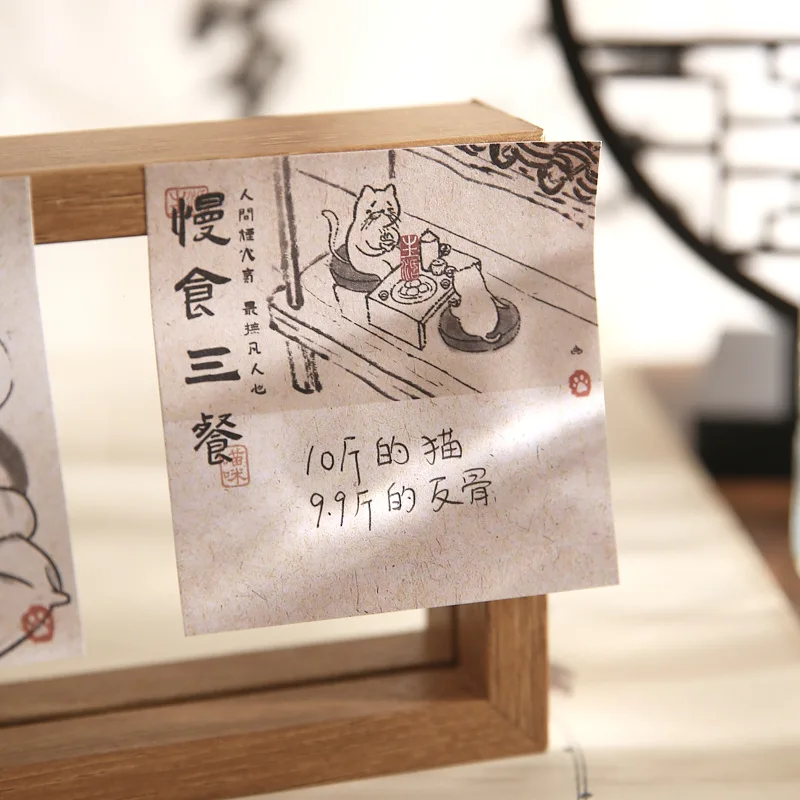 慢食三餐
人間煙火氣
最撫凡人心
喵咪
10斤的猫
9.9斤的反骨